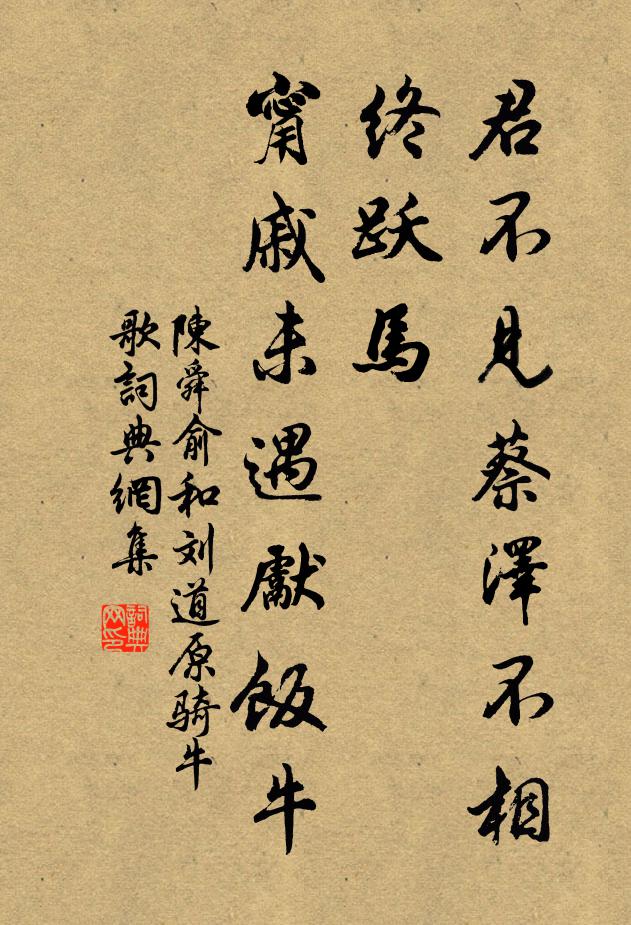 君不見蔡澤不相
終跃馬
甯戚未遇獻飯牛
陳舜俞和刘道原骑牛
歌詞典網集
詞典
网印